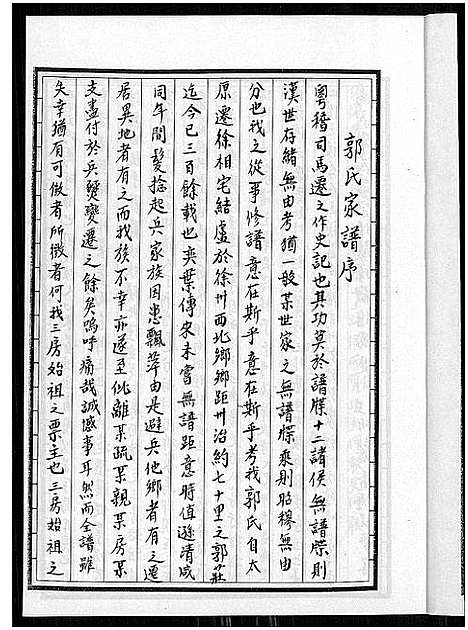 郭氏家譜序
粵稽司馬遷之作史記也其功莫於譜牒十二諸侯無譜牒則
漢世存緒無由考猶一般某世家之無譜牒乘則昭穆無由
分也我之從事修譜意在斯乎意在斯乎考我郭氏自太
原遷徐相宅結廬於徐州西北鄉鄉距州治約七十里之郭小莊
迄今已三百餘載也奕葉傳宋未嘗無譜距意時值遜清咸
同年間髮捻起兵家族因患飄萍由是避兵他鄉者有之遷
居異地者有之而我族不幸亦遂至仳離某疏某親某房某
支盡付於兵燹變遷之餘矣嗚呼痛哉誠感事耳然而全譜雖
失幸猶有可倣者所徵者何我三房始祖之栗主也三房始祖之